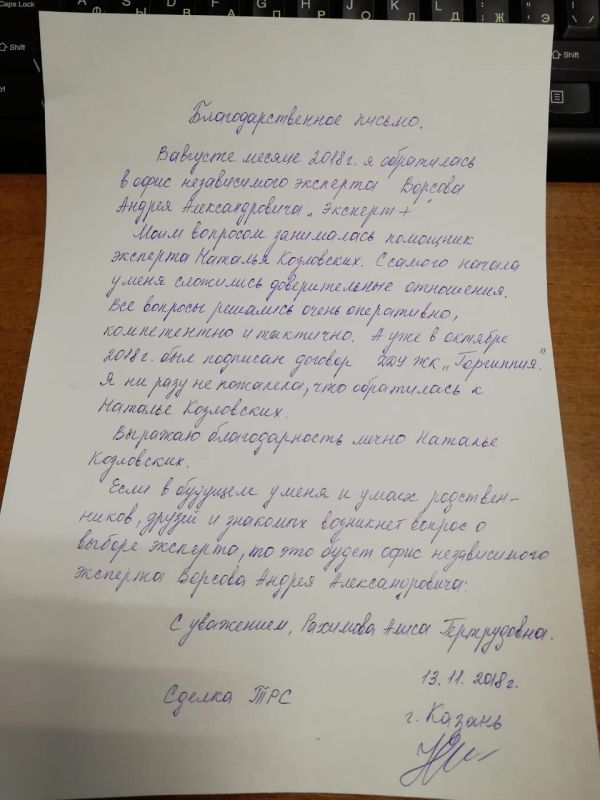 Caps Lock A S D F G H J K L
Ф Ы В А П Р О Л Д Ж Э
Shift
Shift
Благодарственное письмо.
В августе месяце 2018 г. я обратилась
в офис независимого эксперта Ворсова
Андрея Александровича „Эксперт+"
Моим вопросом занималась помощник
эксперта Наталья Козловских. С самого начала
у меня сложились доверительные отношения.
Все вопросы решались очень оперативно,
компетентно и тактично. А уже в октябре
2018 г. был подписан договор ДДУ ЖК „Горгиппия".
Я ни разу не пожалела, что обратилась к
Наталье Козловских.
Выражаю благодарность лично Наталье
Козловских.
Если в будущем у меня и у моих родствен-
ников, друзей и знакомых возникнет вопрос о
выборе эксперта, то это будет офис независимого
эксперта Ворсова Андрея Александровича.
С уважением, Рахимова Алиса Гертрудовна.
13.11.2018 г.
Сделка ТРС
г. Казань